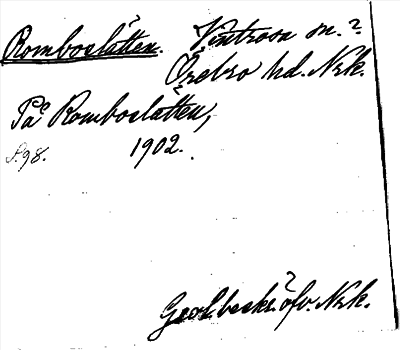 Romboslätten. Vintrosa sn.?
Örebro hd. Nrk.
På Romboslätten,
S.98. 1902.
Geol. beskr. öfv. Nrk.